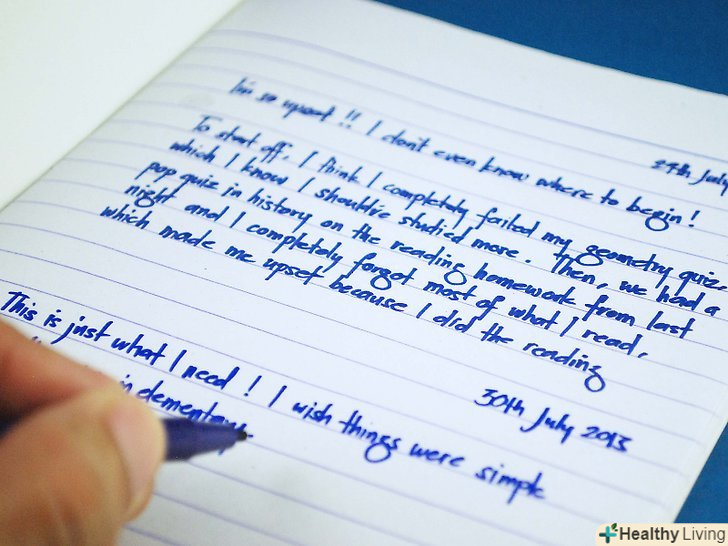 July
I'm so upset!! I don't even know where to begin!
To start off, I think I completely failed my geometry quiz,
which I know I should've studied more. Then, we had a
pop quiz in history on the reading homework from last
night and I completely forgot most of what I read,
which made me upset because I did the reading
30th July 2013
This is just what I need! I wish things were simple
in elementary
Healthy Living